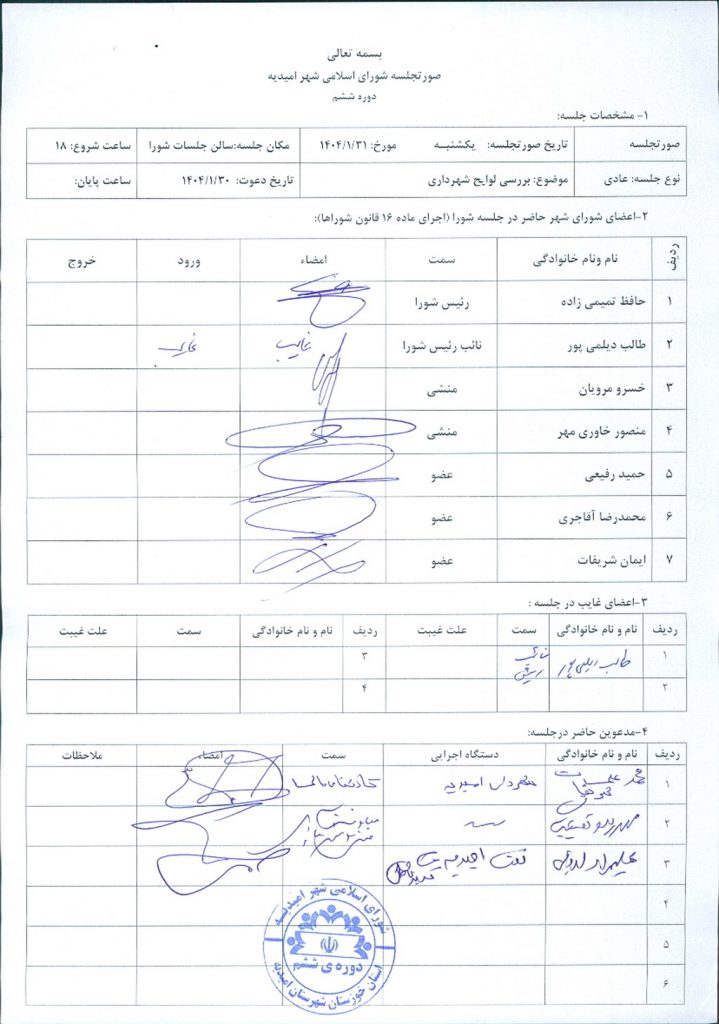 بسمه تعالی
صورتجلسه شورای اسلامی شهر امیدیه
دوره ششم
۱- مشخصات جلسه:
صورتجلسه تاریخ صورتجلسه: یکشنبـه مورخ: ۱۴۰۴/۱/۳۱ مکان جلسه:سالن جلسات شورا ساعت شروع: ۱۸
نوع جلسه: عادی موضوع: بررسی لوایح شهرداری تاریخ دعوت: ۱۴۰۴/۱/۳۰ ساعت پایان:
۲-اعضای شورای شهر حاضر در جلسه شورا (اجرای ماده ۱۶ قانون شوراها):
ردیف نام ونام خانوادگی سمت امضاء ورود خروج
۱ حافظ تمیمی زاده رئیس شورا
۲ طالب دیلمی پور نائب رئیس شورا غایب غایب
۳ خسرو مرویان منشی
۴ منصور خاوری مهر منشی
۵ حمید رفیعی عضو
۶ محمدرضا آقاجری عضو
۷ ایمان شریفات عضو
۳-اعضای غایب در جلسه :
ردیف نام و نام خانوادگی سمت علت غیبت ردیف نام و نام خانوادگی سمت علت غیبت
۱ طالب دیلمی پور نائب رئیس ۳
۲ ۴
۴-مدعوین حاضر درجلسه:
ردیف نام و نام خانوادگی دستگاه اجرایی سمت امضاء ملاحظات
۱ محمد امیدیه
۲
۳ نفت
۴
۵
۶
شورای اسلامی شهر امیدیـه
دوره ی ششم
استان خوزستان شهرستان امیدیه